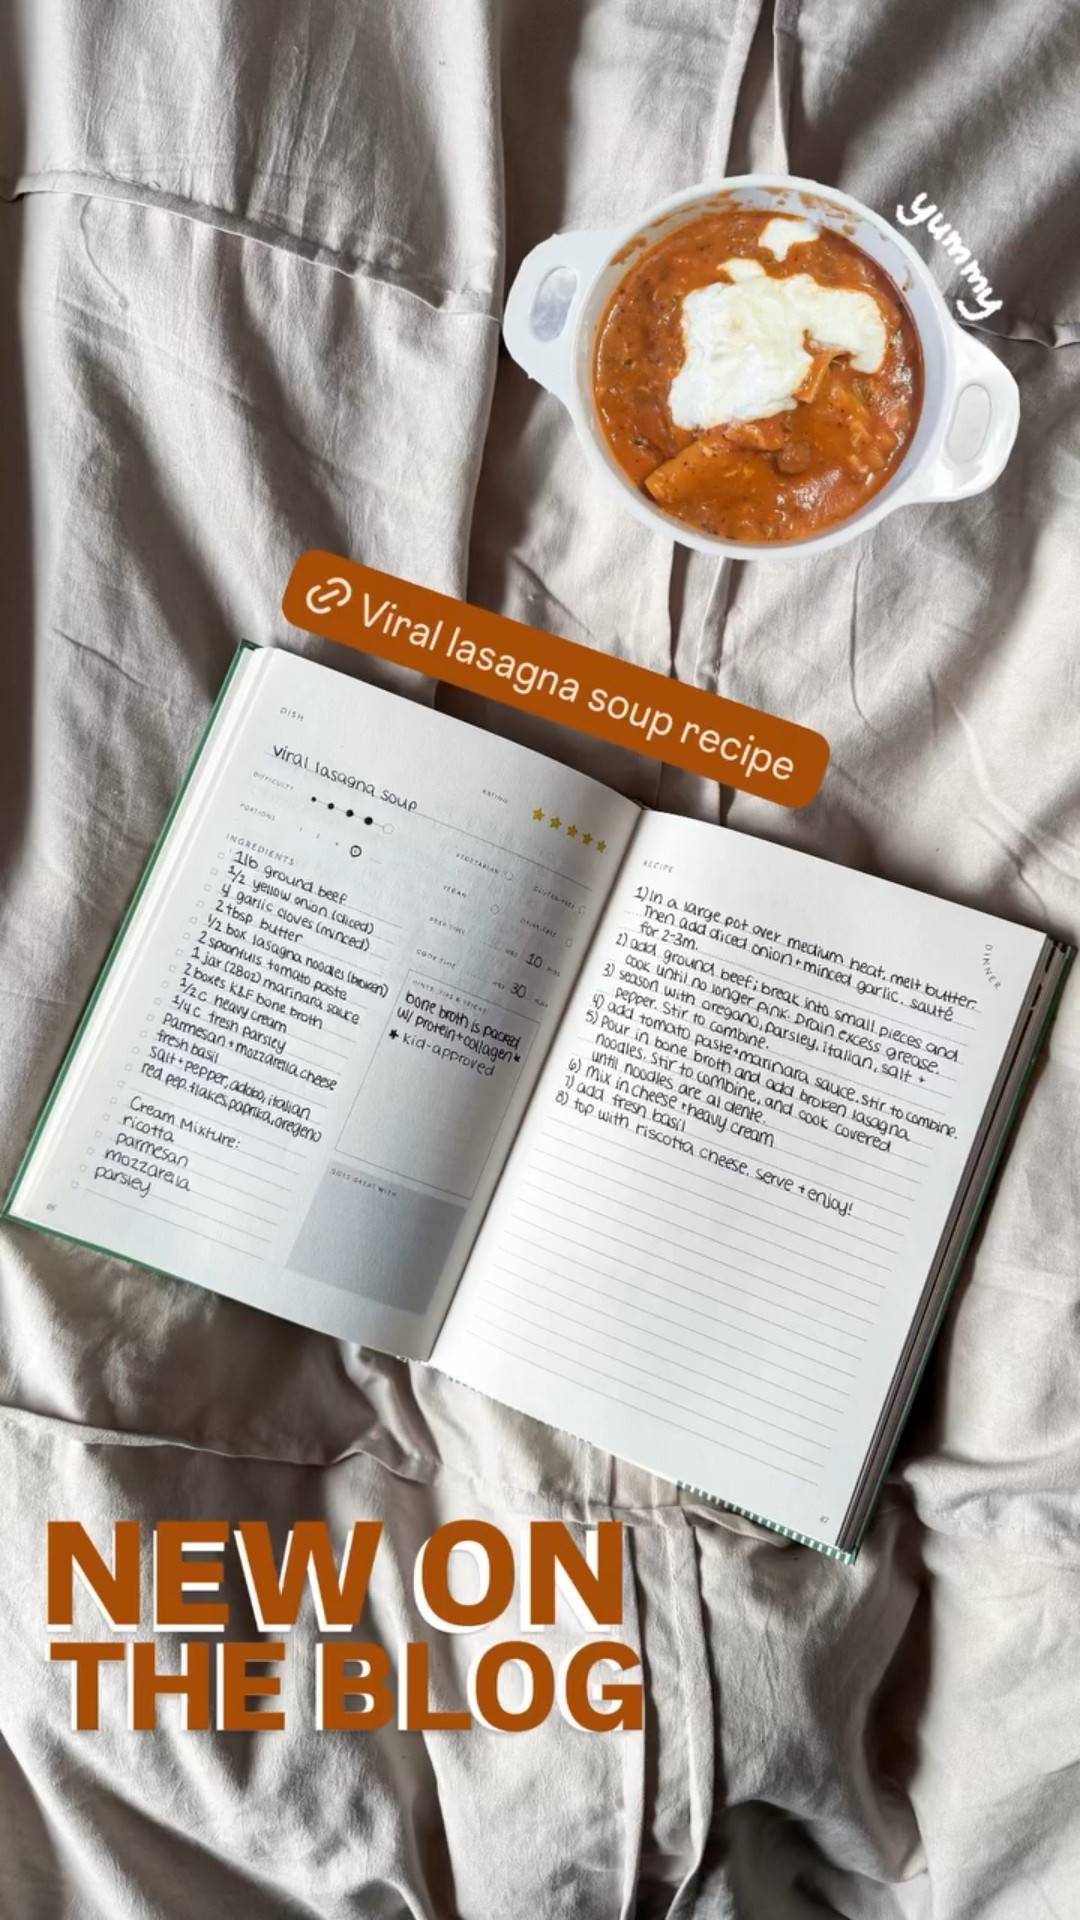 yummy
Viral lasagna soup recipe
DISH
viral lasagna soup
DIFFICULTY
RATING
PORTIONS
VEGETARIAN
GLUTEN-FREE
VEGAN
DAIRY-FREE
PREP TIME
HRS 10 MINS
COOK TIME
HRS 30 MINS
INGREDIENTS
1lb ground beef
1/2 yellow onion (diced)
4 garlic cloves (minced)
2 tbsp butter
1/2 box lasagna noodles (broken)
2 spoonfuls tomato paste
1 jar (28oz) marinara sauce
2 boxes K&F bone broth
1/2 c. heavy cream
1/4 c. fresh parsley
parmesan + mozzarella cheese
fresh basil
salt + pepper, adobo, italian
red pep. flakes, paprika, oregeno
Cream Mixture:
ricotta
parmesan
mozzarella
parsley
bone broth is packed
w/ protein + collagen*
* kid-approved
GOES GREAT WITH
RECIPE
1) In a large pot over medium heat, melt butter.
Then add diced onion + minced garlic. sauté
for 2-3m.
2) add ground beef; break into small pieces and
cook until no longer pink. Drain excess grease.
3) season with oregano, parsley, italian, salt +
pepper. Stir to combine.
4) add tomato paste+marinara sauce. stir to combine.
5) Pour in bone broth and add broken lasagna
noodles. Stir to combine, and cook covered
until noodles are al dente.
6) mix in cheese + heavy cream
7) add fresh basil
8) top with riscotta cheese. serve + enjoy!
DINNER
67
NEW ON
THE BLOG